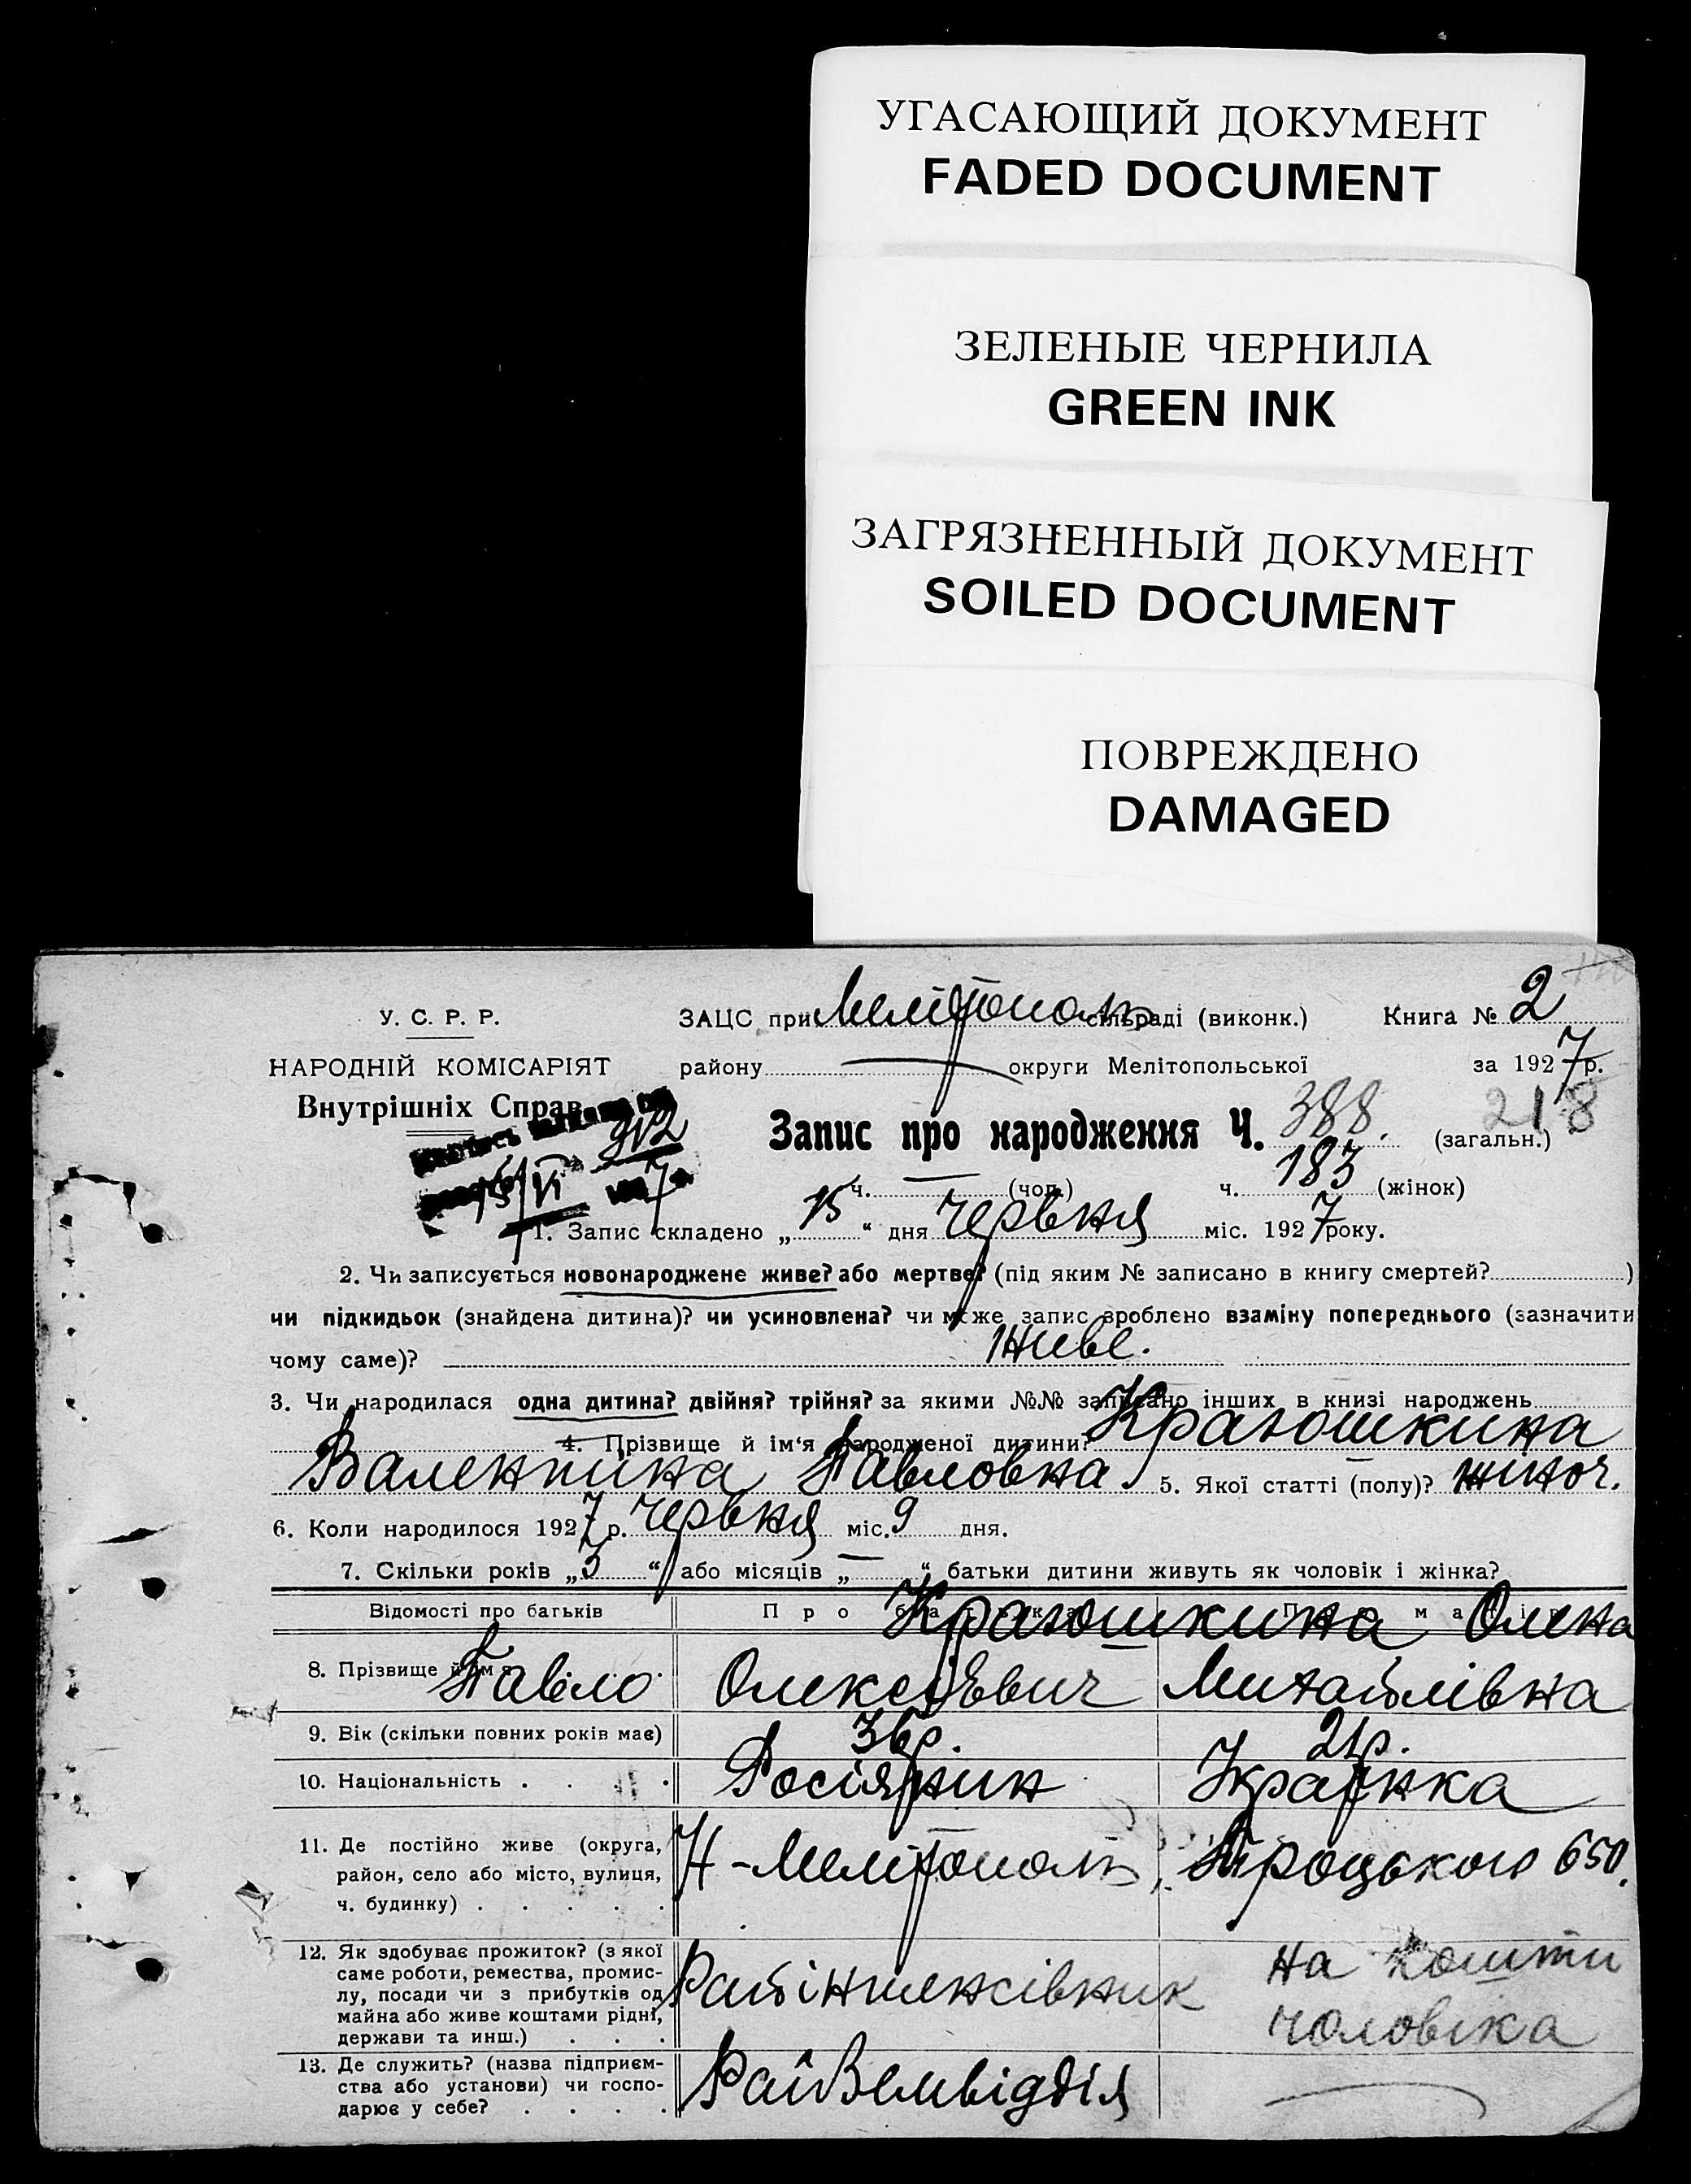 УГАСАЮЩИЙ ДОКУМЕНТ
FADED DOCUMENT
ЗЕЛЕНЫЕ ЧЕРНИЛА
GREEN INK
ЗАГРЯЗНЕННЫЙ ДОКУМЕНТ
SOILED DOCUMENT
ПОВРЕЖДЕНО
DAMAGED
У. С. Р. Р.
НАРОДНІЙ КОМІСАРІЯТ
Внутрішніх Справ
ЗАЦС при Мелітополь сільраді (виконк.) Книга № 2
району — округи Мелітопольської за 1927 р.
218
Запис про народження Ч. 388. (загальн.)
ч. — (чол.) ч. 183 (жінок)
15/VI 7
1. Запис складено „15“ дня Червня міс. 1927 року.
2. Чи записується новонароджене живе? або мертве? (під яким № записано в книгу смертей? )
чи підкидьок (знайдена дитина)? чи усиновлена? чи може запис зроблено взаміну попереднього (зазначити
чому саме)? Живе.
3. Чи народилася одна дитина? двійня? трійня? за якими №№ записано інших в книзі народжень
4. Прізвище й ім‘я народженої дитини? Кратошкина
Валентина Павловна 5. Якої статті (полу)? жіноч.
6. Коли народилося 1927 р. Червня міс. 9 дня.
7. Скільки років „3“ або місяців „—“ батьки дитини живуть як чоловік і жінка?
Відомості про батьків Про батька Про матір
Кратошкина Олена
8. Прізвище й ім‘я Павло Олексієвич Михайлівна
9. Вік (скільки повних років має) 36р. 21р.
10. Національність . . . . Росіянин Українка
11. Де постійно живе (округа,
район, село або місто, вулиця,
ч. будинку) . . . . . Н-Мелітополь, Троцького 650.
12. Як здобуває прожиток? (з якої
саме роботи, ремества, промис-
лу, посади чи з прибутків од
майна або живе коштами рідні,
держави та инш.) . . .
на кошти
чоловіка
13. Де служить? (назва підприєм-
ства або установи) чи госпо-
дарює у себе? . . . . Райземвідділ